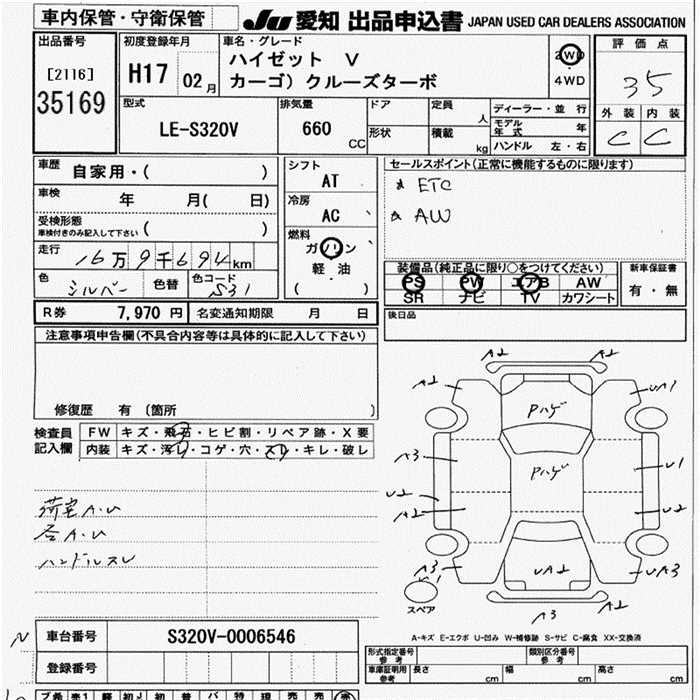 車内保管・守衛保管
JU 愛知 出品申込書 JAPAN USED CAR DEALERS ASSOCIATION
出品番号
[2116]
35169
初度登録年月
H17 02月
車名・グレード
ハイゼット V
カーゴ) クルーズターボ
2WD
4WD
評価点
35
外装 内装
C C
型式
LE-S320V
排気量
660 CC
ドア
形状
定員 人
積載 kg
ディーラー・並行
モデル年式 年
ハンドル 左・右
車歴 自家用・( )
車検 年 月( 日)
受検形態
車検付きのみ記入して下さい ( )
走行 16万9千694km
色 シルバー 色替 色コード S31
シフト
AT
冷房
AC
燃料
ガソリン
軽油
( )
セールスポイント(正常に機能するものに限ります)
ETC
AW
装備品(純正品に限り○をつけてください)
PS PW エアB AW
SR ナビ TV カワシート
新車保証書
有・無
R券 7,970円 名変通知期限 月 日
後日品
注意事項申告欄(不具合内容等は具体的に記入して下さい)
修復歴 有 〔箇所 〕
検査員
記入欄
FW キズ・飛石・ヒビ割・リペア跡・X要
内装 キズ・汚レ・コゲ・穴・スレ・キレ・破レ
荷室A.U
各A.U
ハンドルスレ
A2 A2
A2 UA1
Pハゲ
A3 Pハゲ U1
U2 U2
A2
A3 UA2 UA3
U1
スペア
A3 A2
A-キズ E-エクボ U-凹み W-補修跡 S-サビ C-腐食 XX-交換済
N
車台番号 S320V-0006546
登録番号
形式指定番号
参考
類別区分番号
参考
車庫証明用
参考
長さ cm 幅 cm 高さ cm